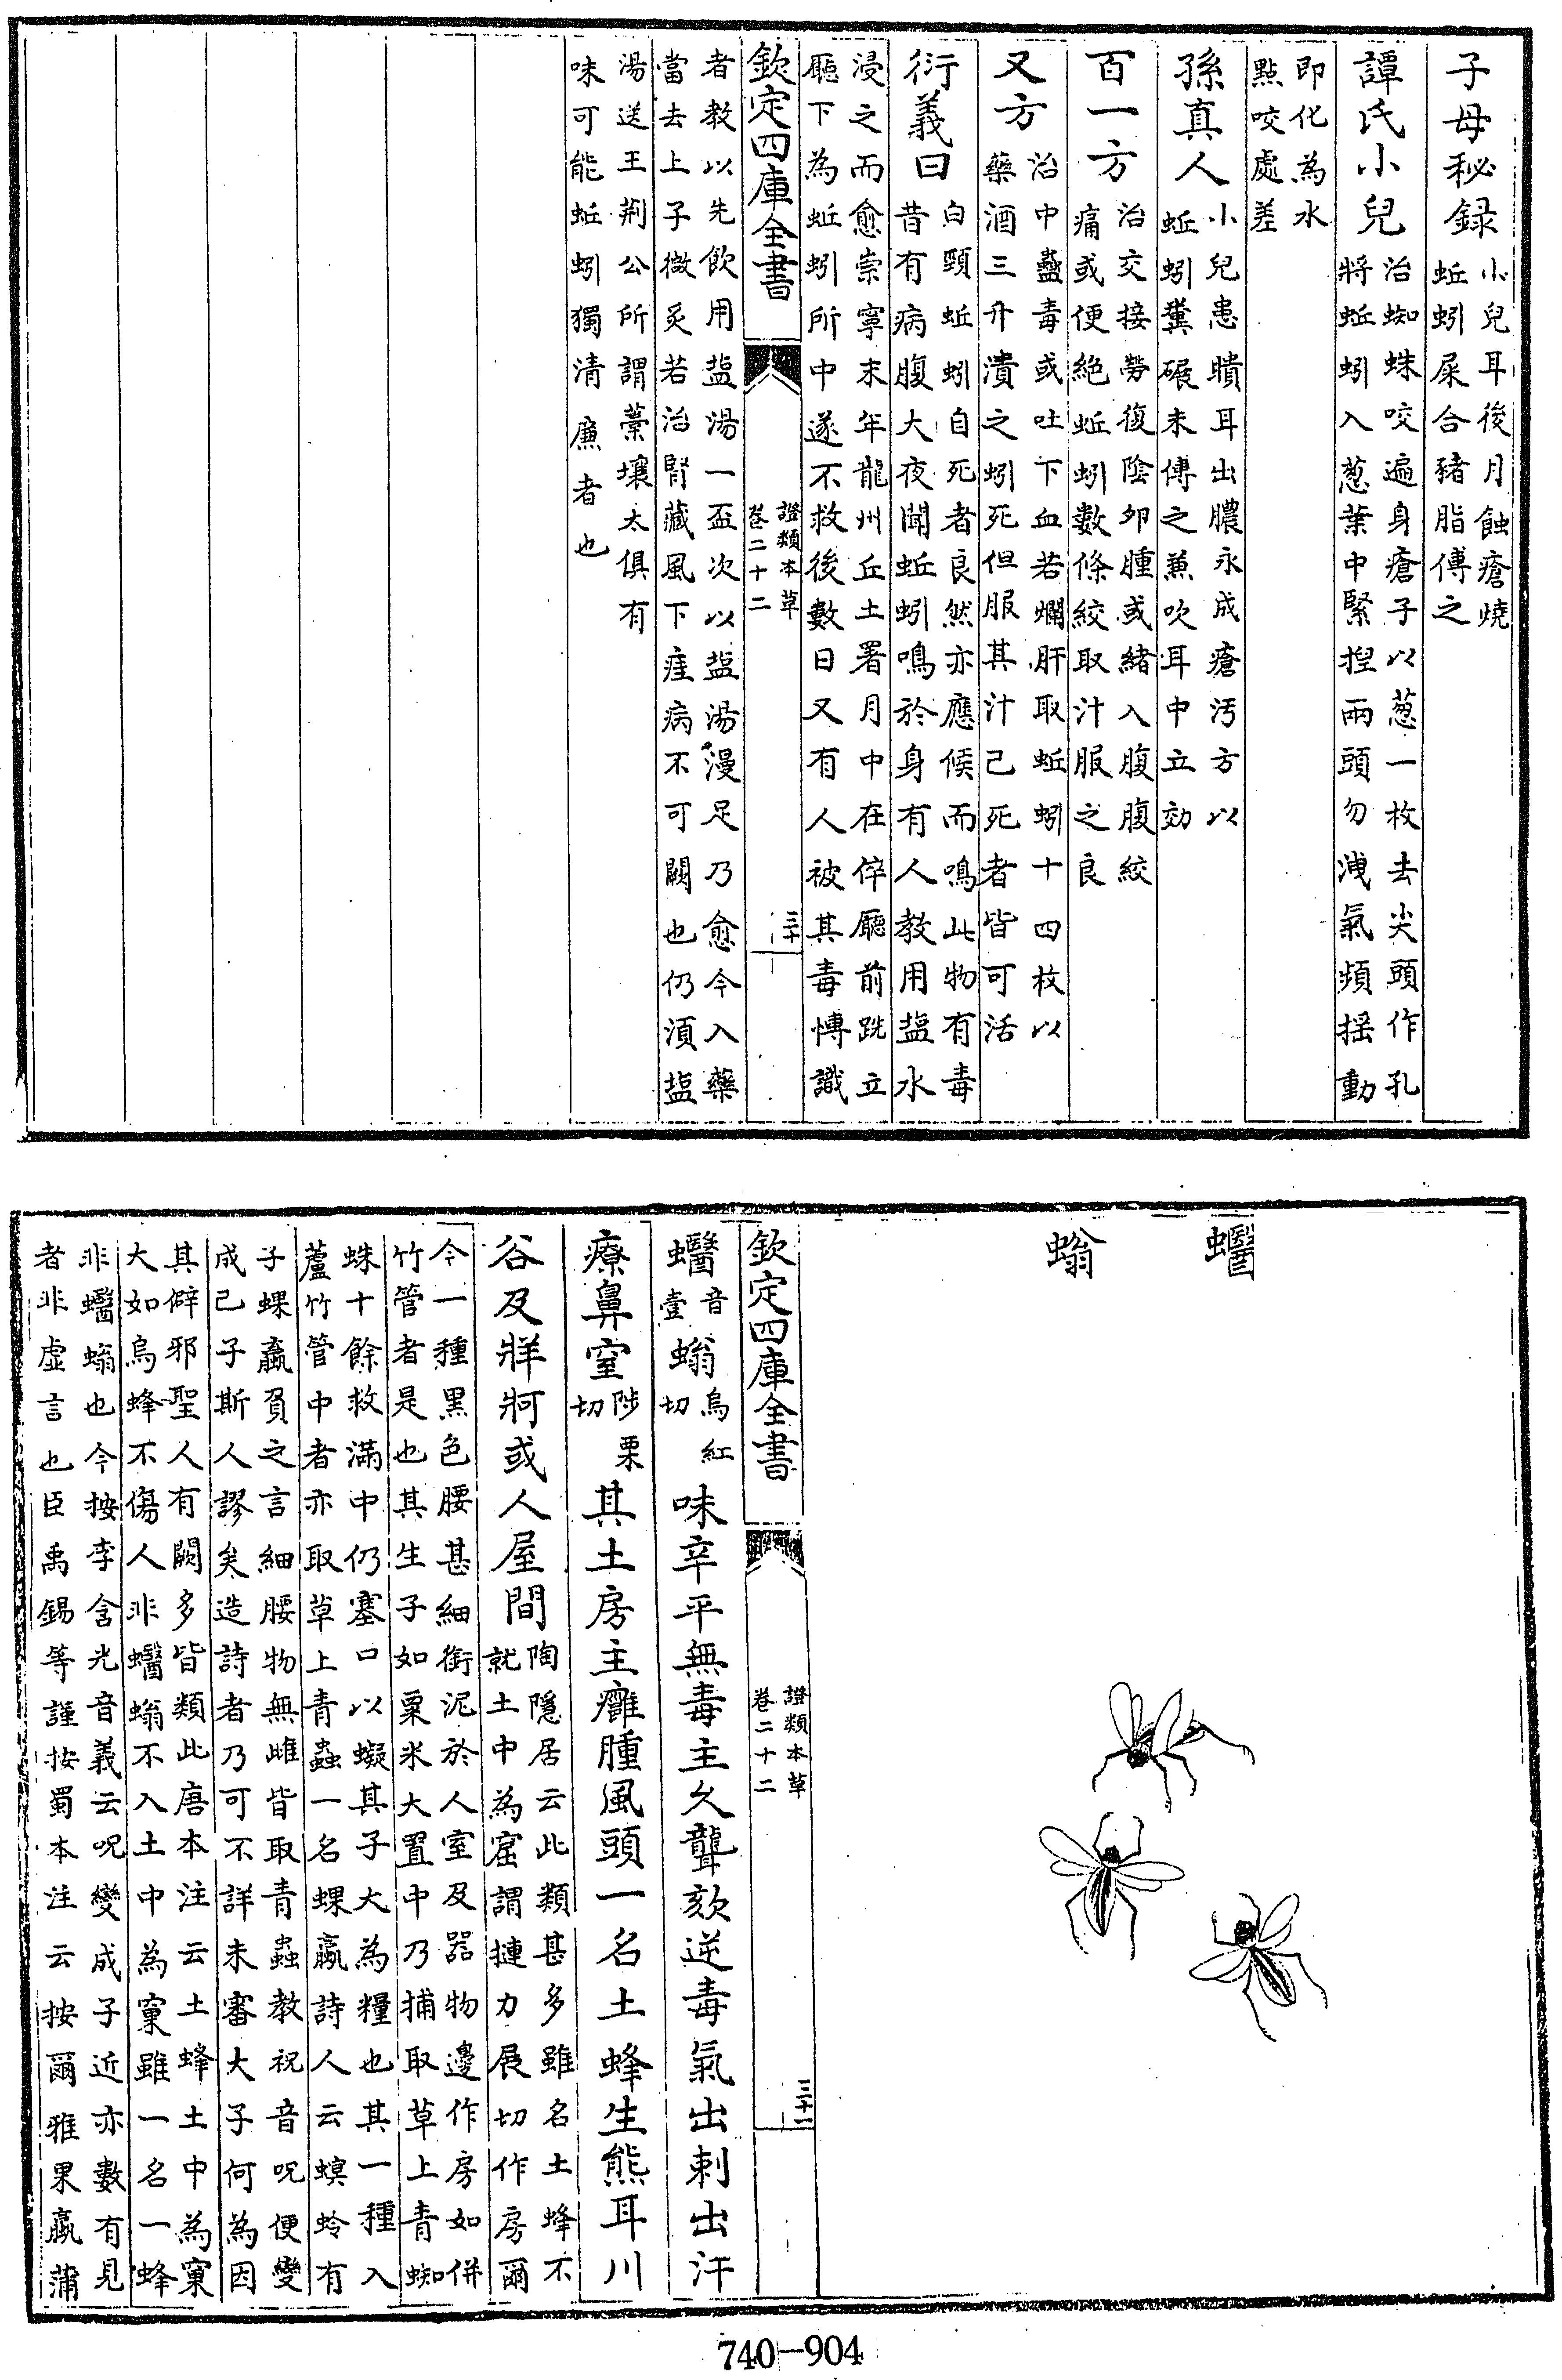 子母秘録小兒耳後月蝕瘡燒
蚯蚓屎合豬脂傅之
譚氏小兒治蜘蛛咬遍身瘡子以葱一枚去尖頭作孔
將蚯蚓入葱葉中緊揑兩頭勿洩氣頻揺動
即化為水
點咬處差
孫真人小兒患聵耳出膿永成瘡汚方以
蚯蚓糞碾末傅之兼吹耳中立効
百一方治交接勞復陰卵腫或縮入腹腹絞
痛或便絶蚯蚓數條絞取汁服之良
又方治中蠱毒或吐下血若爛肝取蚯蚓十四枚以
藥酒三升漬之蚓死但服其汁己死者皆可活
衍義曰白頸蚯蚓自死者良然亦應候而鳴此物有毒
昔有病腹大夜聞蚯蚓鳴於身有人教用塩水
浸之而愈崇寧末年龍州丘土署月中在倅廳前跣立
廳下為蚯蚓所中遂不救後數日又有人被其毒慱識
欽定四庫全書
證類本草
卷二十二
三十
者教以先飲用塩湯一盃次以塩湯漫足乃愈今入藥
當去上子微炙若治腎藏風下疰病不可闕也仍湏塩
湯送王荆公所謂藁壤太俱有
味可能蚯蚓獨清廉者也
蠮
螉
欽定四庫全書
證類本草
卷二十二
三十一
蠮音壹螉烏紅切味辛平無毒主久聾欬逆毒氣出刺出汗
療鼻窒陟栗切其土房主癰腫風頭一名土蜂生熊耳川
谷及牂牁或人屋間陶隱居云此類甚多雖名土蜂不
就土中為窟謂摙力展切作房爾
今一種黑色腰甚細銜泥於人室及器物邊作房如併
竹管者是也其生子如粟米大置中乃捕取草上青蜘
蛛十餘救滿中仍塞口以蟻其子大為糧也其一種入
蘆竹管中者亦取草上青蟲一名蜾蠃詩人云螟蛉有
子蜾蠃負之言細腰物無雌皆取青蟲教祝音呪便變
成己子斯人謬矣造詩者乃可不詳未審夫子何為因
其僻邪聖人有闕多皆類此唐本注云土蜂土中為窠
大如烏蜂不傷人非蠮螉不入土中為窠雖一名一蜂
非蠮螉也今按李含光音義云呪變成子近亦數有見
者非虚言也臣禹錫等謹按蜀本注云按爾雅果蠃蒲
740-904